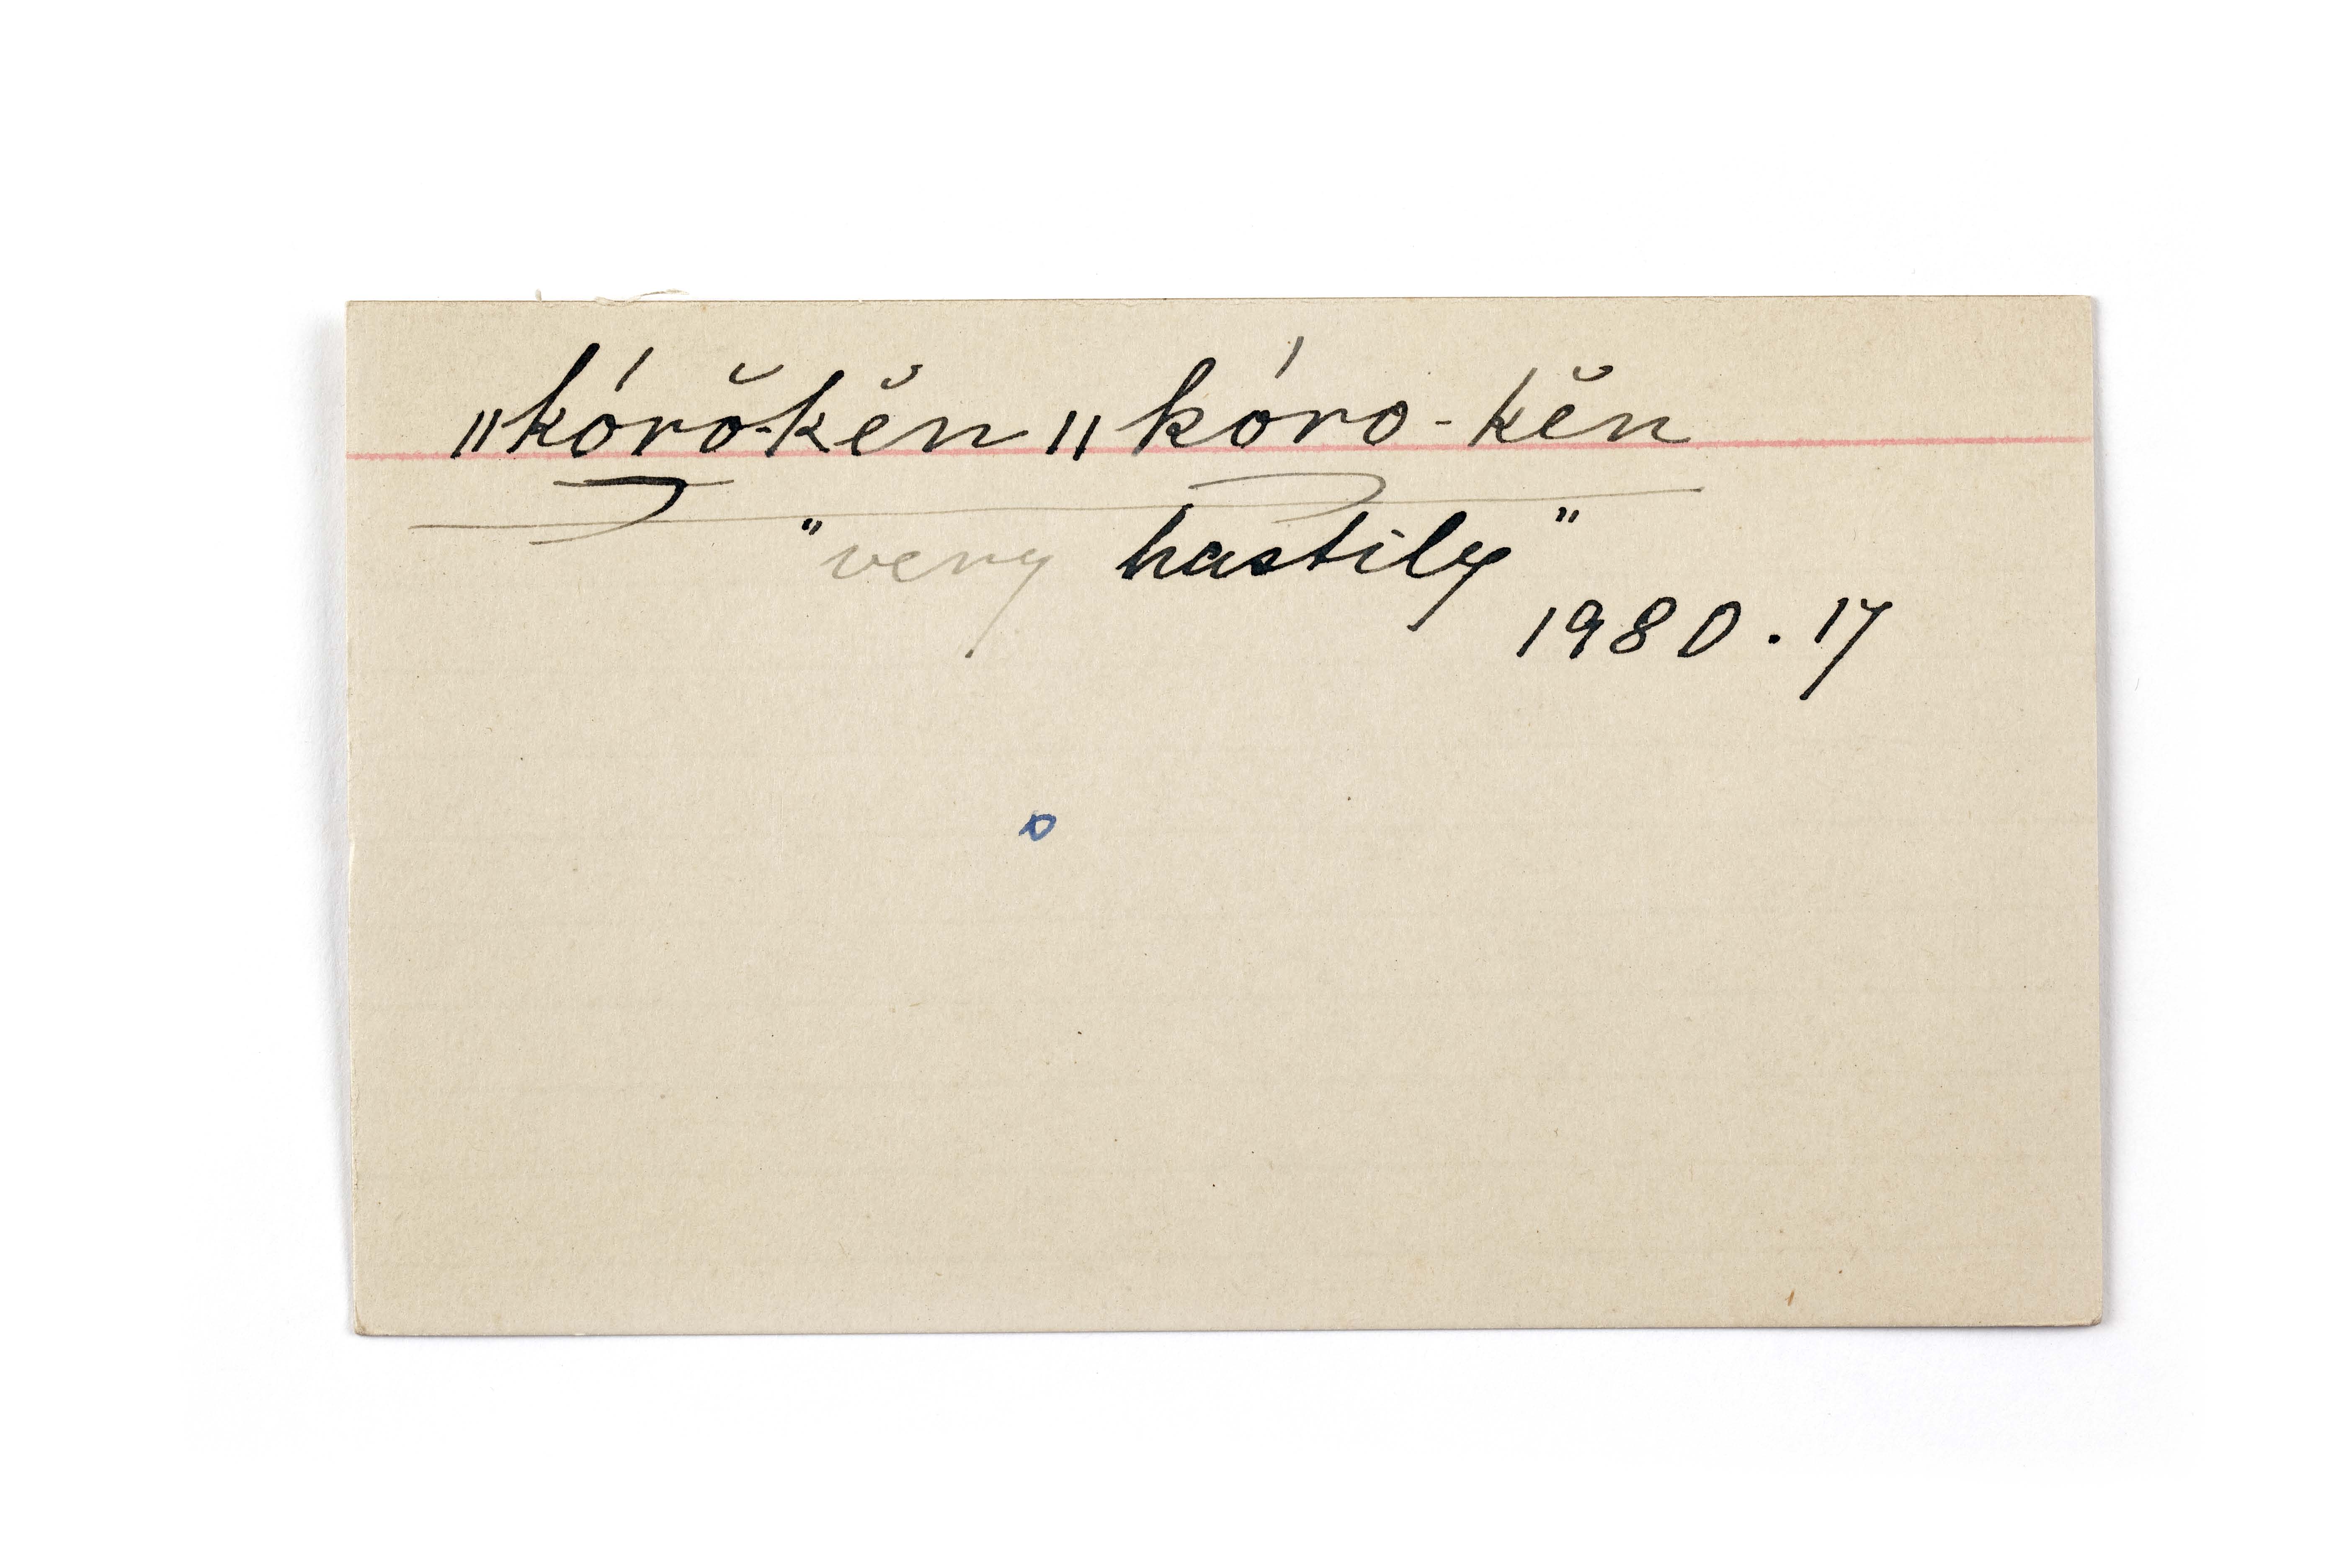 ǁkórŏ-kĕn ǁkóro-kĕn
"very hastily"
1980.17